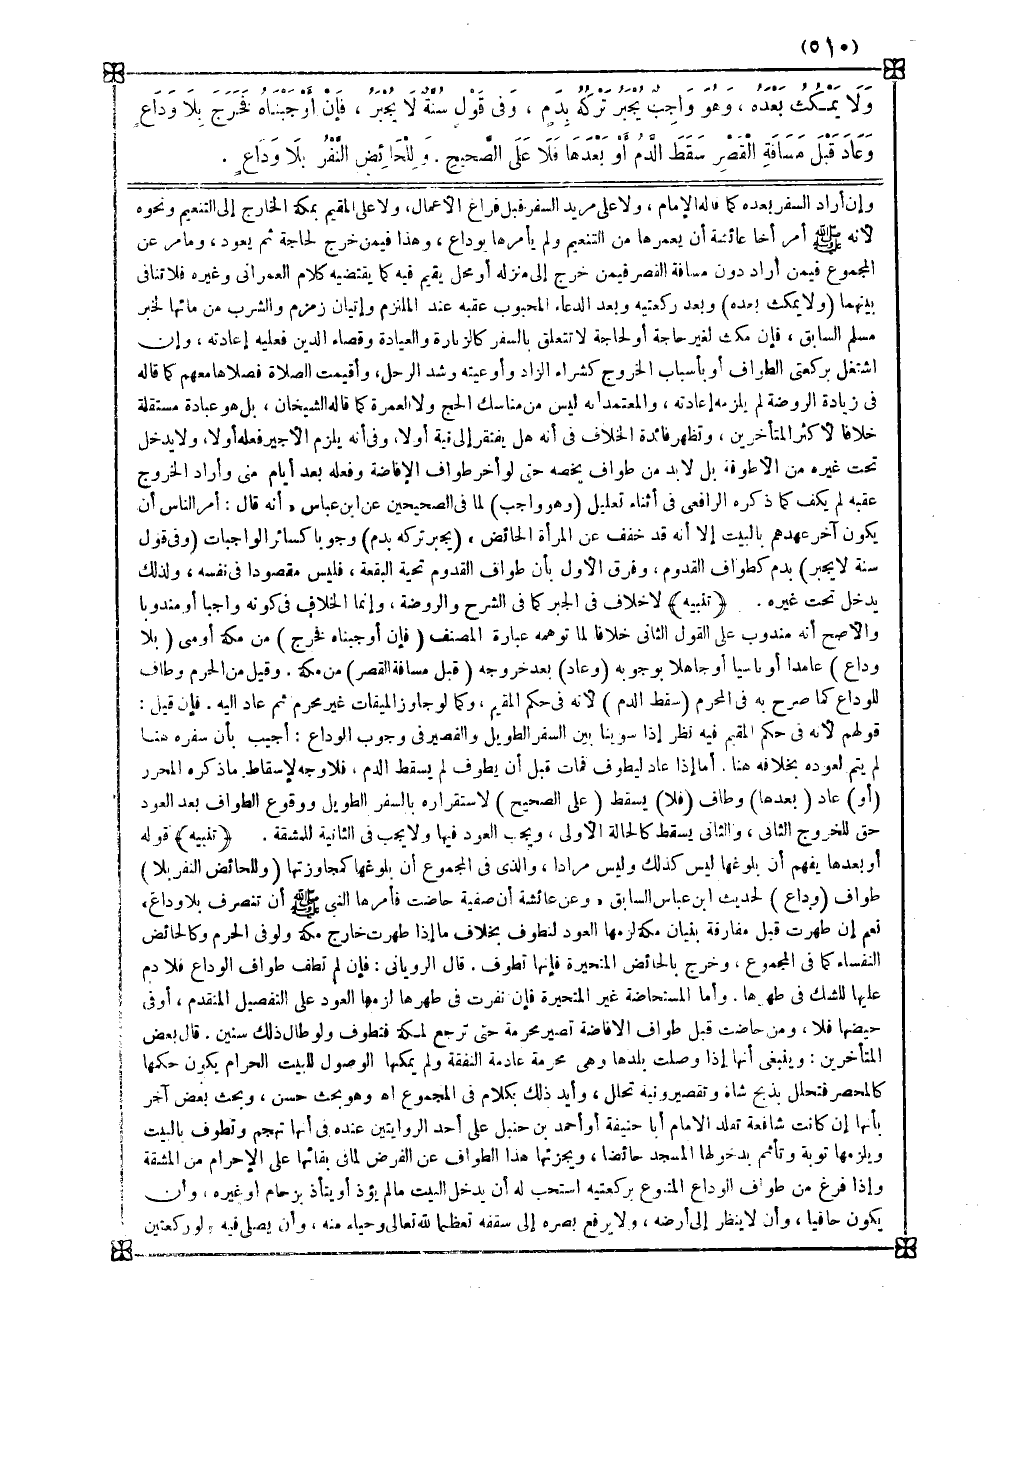 (٥١٠)
وَلَا يَمْكُثُ بَعْدَهُ ، وَهُوَ وَاجِبٌ يُجْبَرُ تَرْكُهُ بِدَمٍ ، وَفِى قَوْلٍ سُنَّةٌ لَا يُجْبَرُ ، فَإِنْ أَوْجَبْنَاهُ فَخَرَجَ بِلَا وَدَاعٍ
وَعَادَ قَبْلَ مَسَافَةِ الْقَصْرِ سَقَطَ الدَّمُ أَوْ بَعْدَهَا فَلَا عَلَى الصَّحِيحِ . وَ لِلْحَائِضِ النَّفْرُ بِلَا وَدَاعٍ .
وإن أراد السفر بعده كما قاله الإمام ، ولا على مريد السفر قبل فراغ الأعمال ، ولا على المقيم بمكة الخارج إلى التنعيم ونحوه
لأنه ﷺ أمر أخا عائشة أن يعمرها من التنعيم ولم يأمرها بوداع ، وهذا فيمن خرج لحاجة ثم يعود ، ومامر عن
المجموع فيمن أراد دون مسافة القصر فيمن خرج إلى منزله أو محل يقيم فيه كما يقتضيه كلام العمرانى وغيره فلا تنافى
بينهما (ولا يمكث بعده) وبعد ركعتيه وبعد الدعاء المحبوب عقبه عند الملتزم وإتيان زمزم والشرب من مائها لخبر
مسلم السابق ، فإن مكث لغير حاجة أو لحاجة لا تتعلق بالسفر كالزيارة والعيادة وقضاء الدين فعليه إعادته ، وإن
اشتغل بركعتى الطواف أو بأسباب الخروج كشراء الزاد وأوعيته وشد الرحل ، وأقيمت الصلاة فصلاها معهم كما قاله
فى زيادة الروضة لم يلزمه إعادته ، والمعتمد أنه ليس من مناسك الحج ولا العمرة كما قاله الشيخان ، بل هو عبادة مستقلة
خلافا لأكثر المتأخرين ، وتظهر فائدة الخلاف فى أنه هل يفتقر إلى نية أولا ، وفى أنه يلزم الأجير فعله أولا ، ولا يدخل
تحت غيره من الأطوفة بل لابد من طواف يخصه حتى لو أخر طواف الإفاضة وفعله بعد أيام منى وأراد الخروج
عقبه لم يكف كما ذكره الرافعى فى أثناء تعليل (وهو واجب) لما فى الصحيحين عن ابن عباس « أنه قال : أمر الناس أن
يكون آخر عهدهم بالبيت إلا أنه قد خفف عن المرأة الحائض » (يجبر تركه بدم) وجوبا كسائر الواجبات (وفى قول
سنة لايجبر) بدم كطواف القدوم ، وفرق الأول بأن طواف القدوم تحية البقعة ، فليس مقصودا فى نفسه ، ولذلك
يدخل تحت غيره . ﴿تنبيه﴾ لاخلاف فى الجبر كما فى الشرح والروضة ، وإنما الخلاف فى كونه واجبا أو مندوبا
والأصح أنه مندوب على القول الثانى خلافا لما توهمه عبارة المصنف ( فإن أوجبناه فخرج ) من مكة أو منى ( بلا
وداع ) عامدا أو ناسيا أو جاهلا بوجوبه (وعاد) بعد خروجه ( قبل مسافة القصر) من مكة . وقيل من الحرم وطاف
للوداع كما صرح به فى المحرر (سقط الدم ) لأنه فى حكم المقيم ، وكما لو جاوز الميقات غير محرم ثم عاد اليه . فإن قيل :
قولهم لأنه فى حكم المقيم فيه نظر إذا سوينا بين السفر الطويل والقصير فى وجوب الوداع : أجيب بأن سفره هنا
لم يتم لعوده بخلافه هنا . أما إذا عاد ليطوف فمات قبل أن يطوف لم يسقط الدم ، فلا وجه لإسقاط ماذكره المحرر
(أو) عاد ( بعدها) وطاف (فلا) يسقط ( على الصحيح ) لاستقراره بالسفر الطويل ووقوع الطواف بعد العود
حق للخروج الثانى ، والثانى يسقط كالحالة الأولى ، ويجب العود فيها ولا يجب فى الثانية للمشقة . ﴿تنبيه﴾ قوله
أو بعدها يفهم أن بلوغها ليس كذلك وليس مرادا ، والذى فى المجموع أن بلوغها كمجاوزتها (وللحائض النفر بلا )
طواف (وداع ) لحديث ابن عباس السابق « وعن عائشة أن صفية حاضت فأمرها النبى ﷺ أن تنصرف بلا وداع »
نعم إن طهرت قبل مفارقة بنيان مكة لزمها العود لتطوف بخلاف ما إذا طهرت خارج مكة ولو فى الحرم وكالحائض
النفساء كما فى المجموع ، وخرج بالحائض المتحيرة فإنها تطوف . قال الرويانى : فإن لم تطف طواف الوداع فلا دم
عليها للشك فى طهرها . وأما المستحاضة غير المتحيرة فإن نفرت فى طهرها لزمها العود على التفصيل المتقدم ، أو فى
حيضها فلا ، ومن حاضت قبل طواف الافاضة تصير محرمة حتى ترجع لمكة فتطوف ولو طال ذلك سنين . قال بعض
المتأخرين : وينبغى أنها إذا وصلت بلدها وهى محرمة عادمة النفقة ولم يمكنها الوصول للبيت الحرام يكون حكمها
كالمحصر فتتحلل بذبح شاة وتقصير ونية تحلل ، وأيد ذلك بكلام فى المجموع اه وهو بحث حسن ، وبحث بعض آخر
بأنها إن كانت شافعة تقلد الامام أبا حنيفة أو أحمد بن حنبل على أحد الروايتين عنده فى أنها تهجم وتطوف بالبيت
ويلزمها توبة وتأثم بدخولها المسجد حائضا ، ويجزئها هذا الطواف عن الفرض لما فى بقائها على الإحرام من المشقة
وإذا فرغ من طواف الوداع المتبوع بركعتيه استحب له أن يدخل البيت مالم يؤذ أو يتأذ بزحام أو غيره ، وأن
يكون حافيا ، وأن لا ينظر إلى أرضه ، ولا يرفع بصره إلى سقفه تعظيما لله تعالى وحياء منه ، وأن يصلى فيه ولو ركعتين